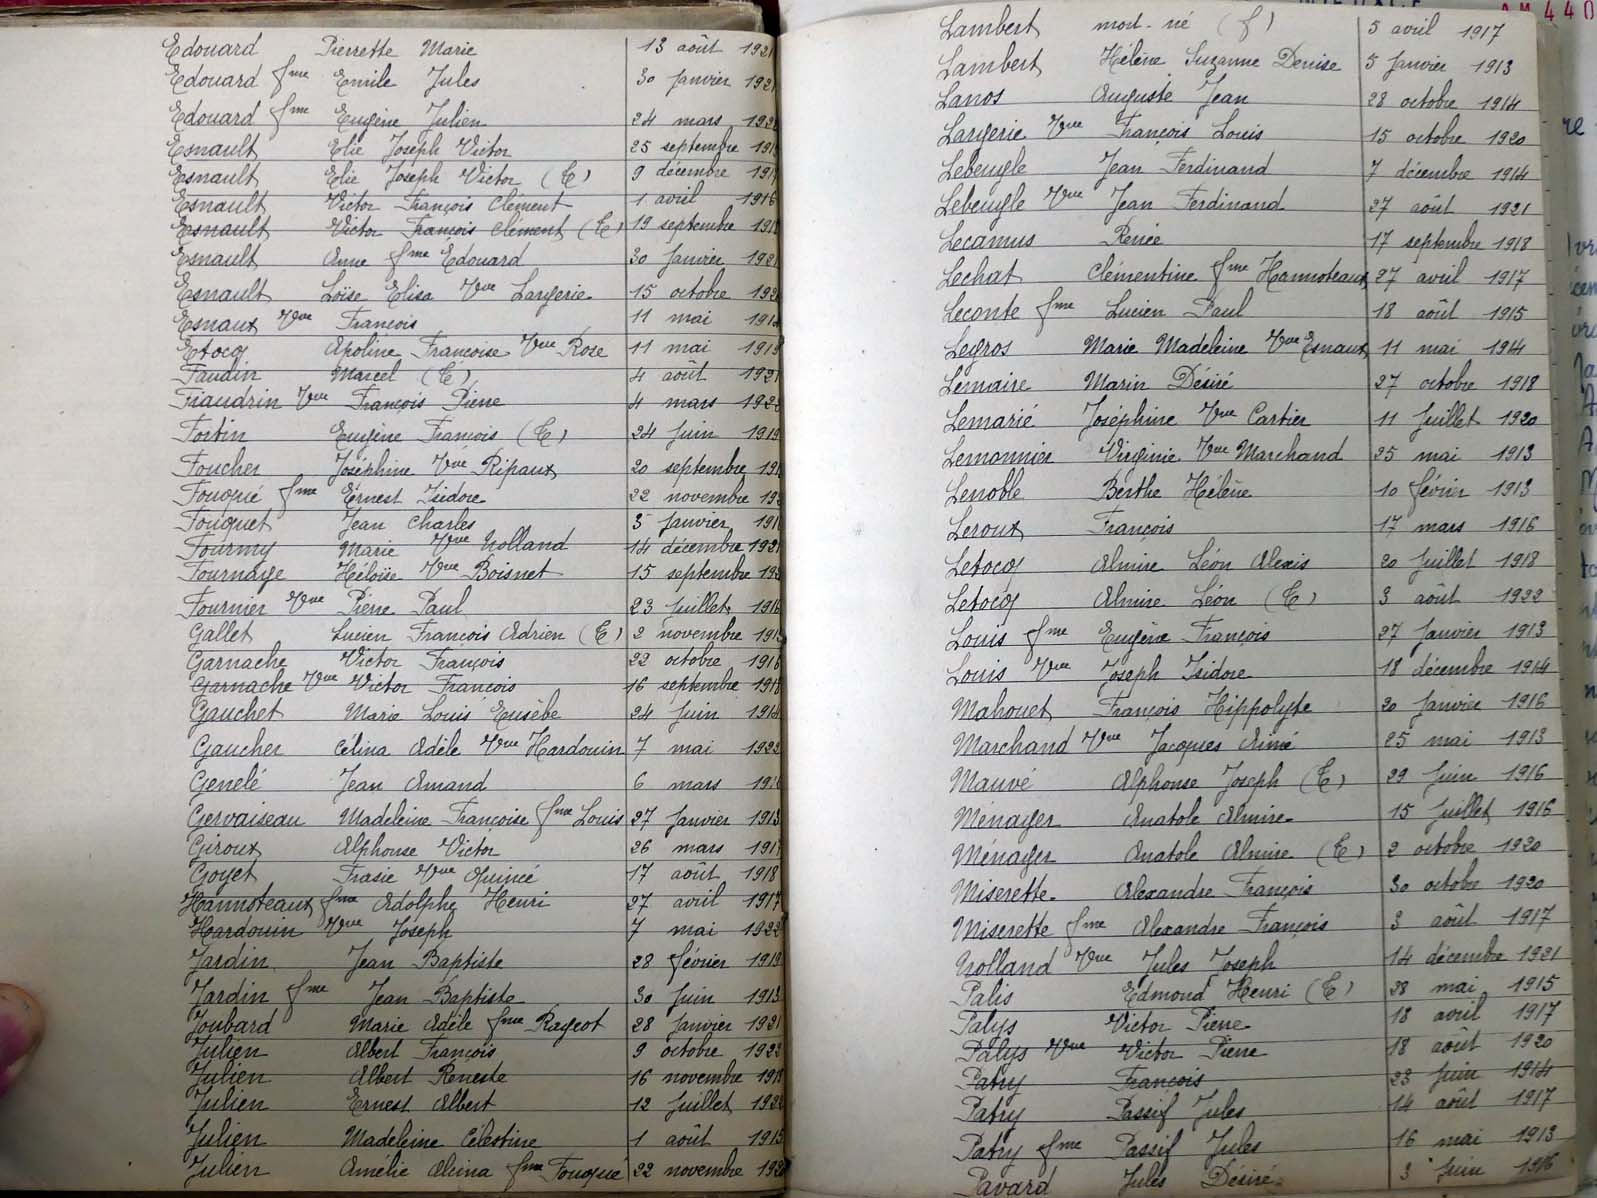 Edouard Pierrette Marie 13 août 1921
Edouard fme Emile Jules 30 Janvier 192
Edouard fme Eugène Julien 24 mars 192
Esnault Elie Joseph Victor 25 septembre 191
Esnault Elie Joseph Victor (T) 9 décembre 191
Esnault Victor François Clement 1 avril 1916
Esnault Victor François Clement (T) 19 septembre 191
Esnault Anne fme Edouard 30 Janvier 192
Esnault Loïse Elisa Vve Largerie 15 octobre 192
Esnaux Vve François 11 mai 191
Etocq Apoline Françoise Vve Rose 11 mai 191
Faudin Marcel (T) 4 août 1921
Fiaudrin Vve François Pierre 4 mars 1922
Fortin Eugène François (T) 24 Juin 1919
Foucher Joséphine Vve Ripaux 20 septembre 191
Fouqué fme Ernest Isidore 22 novembre 192
Fouquet Jean Charles 5 Janvier 191
Fourmy Marie Vve Nolland 14 décembre 1921
Fournage Héloïse Vve Boisnet 15 septembre 192
Fournier Vve Pierre Paul 23 Juillet 1916
Gallet Lucien François Adrien (T) 2 novembre 191
Garnache Victor François 22 octobre 1916
Garnache Vve Victor François 16 septembre 1918
Gauchet Marie Louis Eusèbe 24 Juin 1914
Gaucher Célina Adèle Vve Hardouin 7 mai 1922
Genelé Jean Amand 6 mars 191
Gervaiseau Madeleine Françoise fme Louis 27 Janvier 1913
Giroux Alphonse Victor 26 mars 191
Goyet Frasie Vve Quincé 17 août 1918
Hannoteaux fme Adolphe Henri 27 avril 1917
Hardouin Vve Joseph 7 mai 1922
Jardin Jean Baptiste 28 février 1919
Jardin fme Jean Baptiste 30 Juin 1913
Joubard Marie Adèle fme Rageot 28 Janvier 1921
Julien Albert François 9 octobre 1922
Julien Albert Reneste 16 novembre 191
Julien Ernest Albert 12 Juillet 1922
Julien Madeleine Célestine 1 août 1915
Julien Amélie Alsina fme Fouqué 22 novembre 192
AM440
Lambert mort-né (f) 5 avril 1917
Lambert Hélène Suzanne Denise 5 Janvier 1913
Lanos Auguste Jean 28 octobre 1914
Largerie Vve François Louis 15 octobre 1920
Lebeugle Jean Ferdinand 7 décembre 1914
Lebeugle Vve Jean Ferdinand 27 août 1921
Lecamus Renée 17 septembre 1918
Lechat Clémentine fme Hannoteaux 27 avril 1917
Leconte fme Lucien Paul 18 août 1915
Legros Marie Madeleine Vve Esnaux 11 mai 1914
Lemaire Marin Désiré 27 octobre 1918
Lemarié Joséphine Vve Cartier 11 Juillet 1920
Lemonnier Virginie Vve Marchand 25 mai 1913
Lenoble Berthe Hélène 10 février 1913
Leroux François 17 mars 1916
Letocq Almire Léon Alexis 20 Juillet 1918
Letocq Almire Léon (T) 3 août 1922
Louis fme Eugène François 27 Janvier 1913
Louis Vve Joseph Isidore 18 décembre 1914
Mahouet François Hippolyte 20 Janvier 1916
Marchand Vve Jacques Aimé 25 mai 1913
Mauvé Alphonse Joseph (T) 29 Juin 1916
Ménager Anatole Almire 15 Juillet 1916
Ménager Anatole Almire (T) 2 octobre 1920
Miserette Alexandre François 30 octobre 1920
Miserette fme Alexandre François 3 août 1917
Nolland Vve Jules Joseph 14 décembre 1921
Palis Edmond Henri (T) 28 mai 1915
Palys Victor Pierre 18 avril 1917
Palys Vve Victor Pierre 18 août 1920
Patry François 23 Juin 1914
Patry Passif Jules 14 août 1917
Patry fme Passif Jules 16 mai 1913
Pavard Jules Désiré 3 Juin 1916